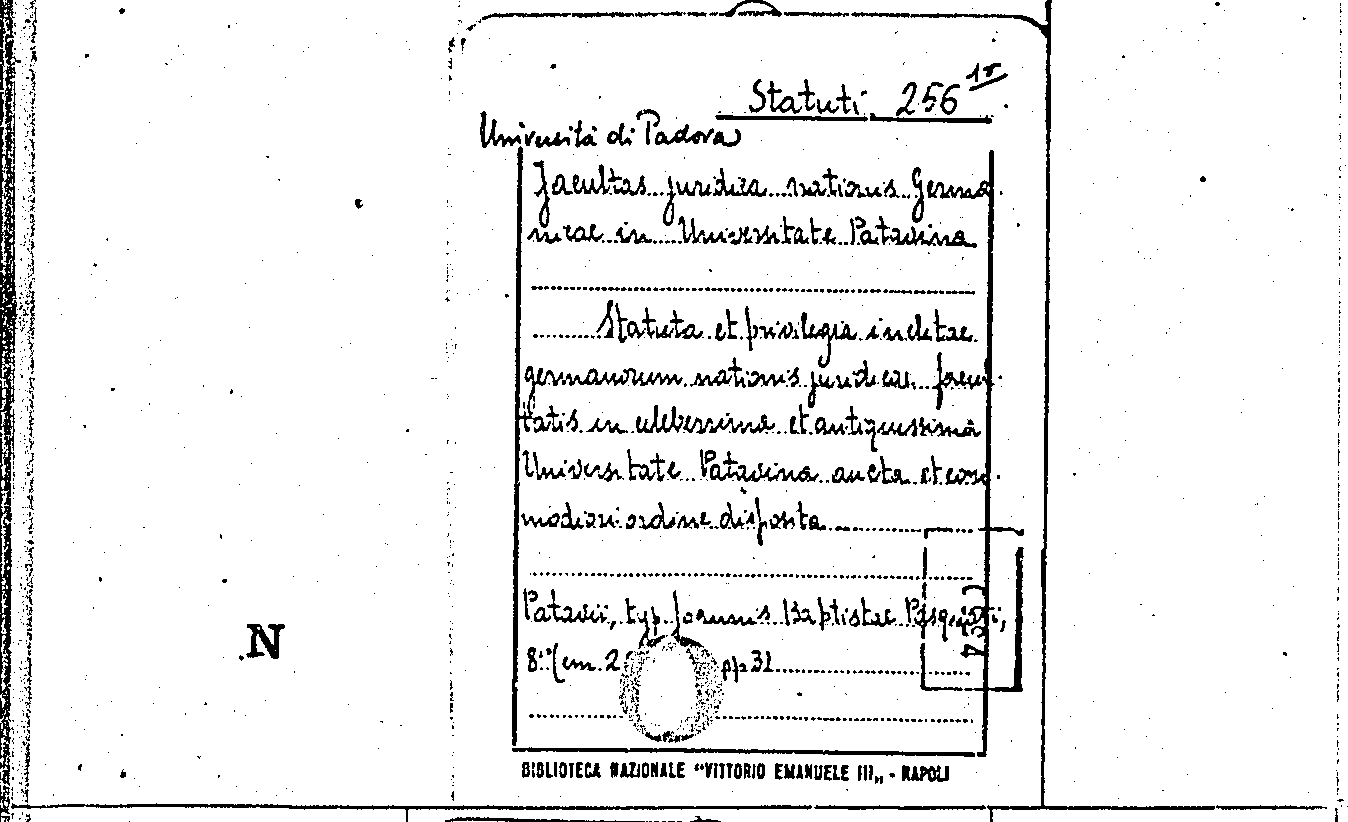 Statuti. 256 15
Università di Padova
Facultas juridica nationis Germa-
nicae in Universitate Patavina
Statuta et privilegia inclitae
germanorum nationis juridicae facul-
tatis in celeberrima et antiquissima
Universitate Patavina aucta et com-
modiori ordine disposita
Patavii, typ. Joannis Baptistae Pasquati,
8.° (cm. 2 pp. 31
N
BIBLIOTECA NAZIONALE "VITTORIO EMANUELE III„ - NAPOLI